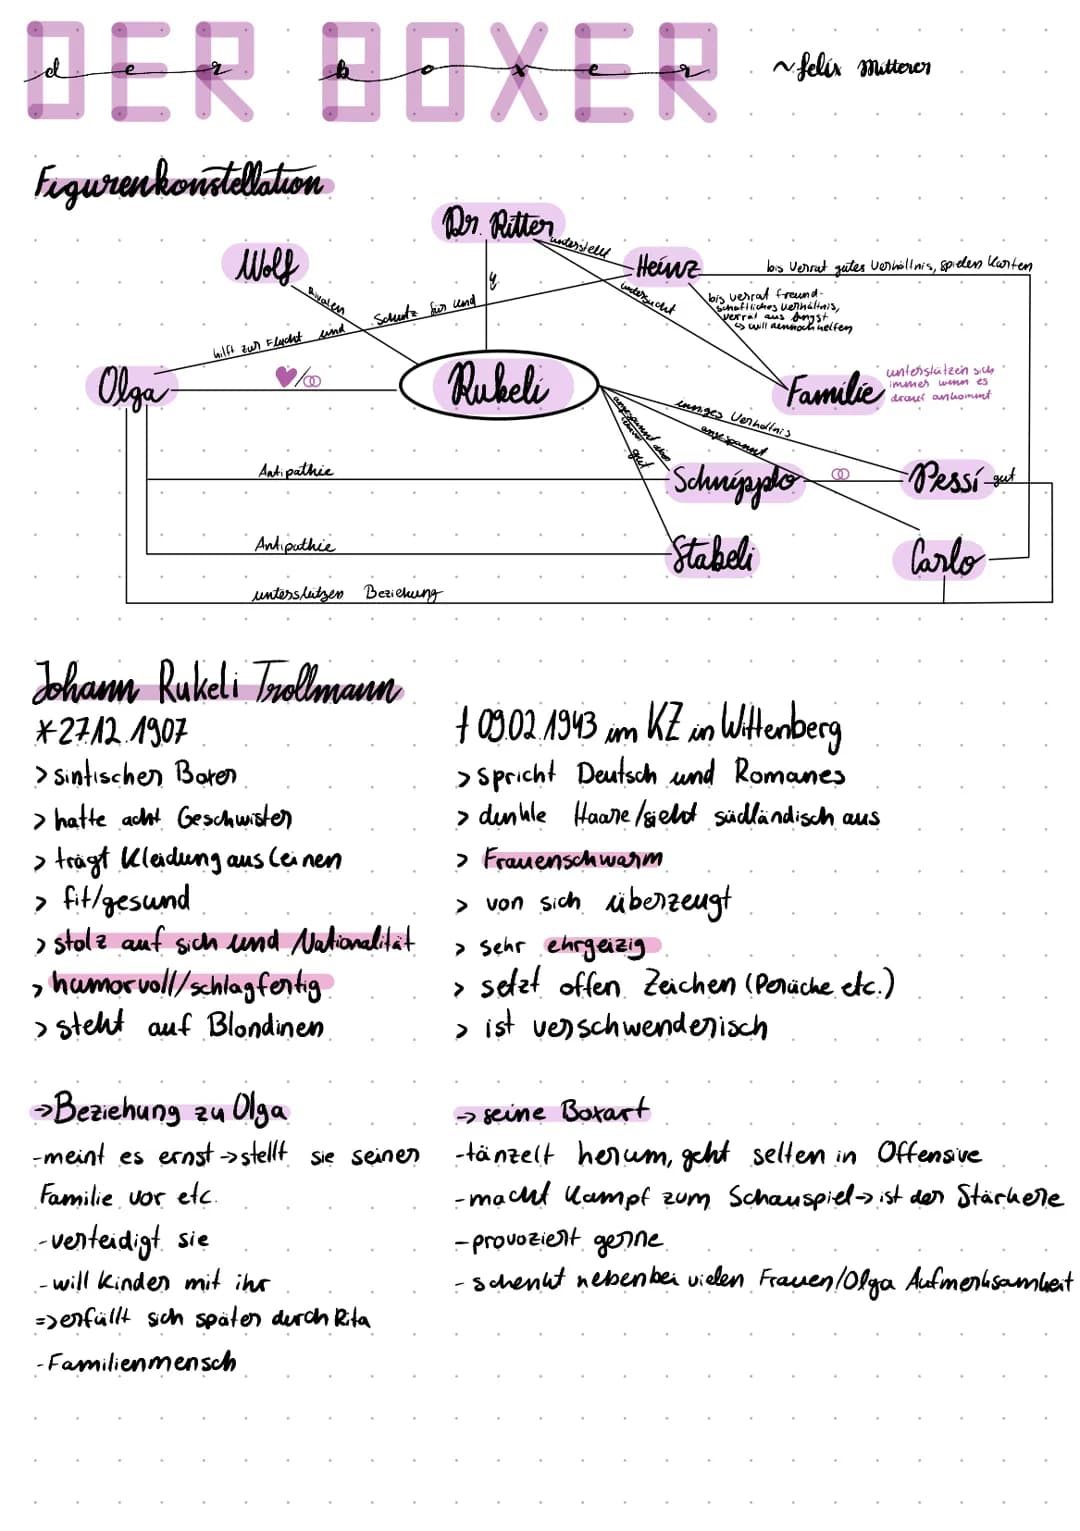 DER BOXER
der boxer
~felix Mitterer
Figurenkonstellation
Dr. Ritter
Wolf
unterstellt
Heinz
bis Verrat gutes Verhältnis, spielen Karten
untersucht
bis verrat freund-
schaftliches Verhältnis,
verrat aus Angst
↳ will dennoch helfen
Rivalen
hilft zur Flucht und Schutz für und
Olga
Rukeli
Familie
unterstützein sich
immer wenn es
drauf ankommt
inniges Verhältnis
angespannt
gut
Antipathie
Schnipplo
Pessi
gut
Antipathie
Stabeli
Carlo
unterstützen Beziehung
Johann Rukeli Trollmann
*27.12.1907
† 09.02.1943 im KZ in Wittenberg
> sintischer Boxer
> spricht Deutsch und Romanes
> hatte acht Geschwister
> dunkle Haare/sieht südländisch aus
> trägt Kleidung aus Leinen
> Frauenschwarm
> fit/gesund
> von sich überzeugt
> stolz auf sich und Nationalität
> sehr ehrgeizig
> humorvoll/schlagfertig
> setzt offen Zeichen (Perücke etc.)
> steht auf Blondinen
> ist verschwenderisch
→Beziehung zu Olga
→ seine Boxart
-meint es ernst → stellt sie seiner
-tänzelt herum, geht selten in Offensive
Familie vor etc.
-macht Kampf zum Schauspiel → ist der Stärkere
-verteidigt sie
-provoziert gerne
-will Kinder mit ihr
- schenkt nebenbei vielen Frauen/Olga Aufmerksamkeit
=> erfüllt sich später durch Rita
-Familienmensch